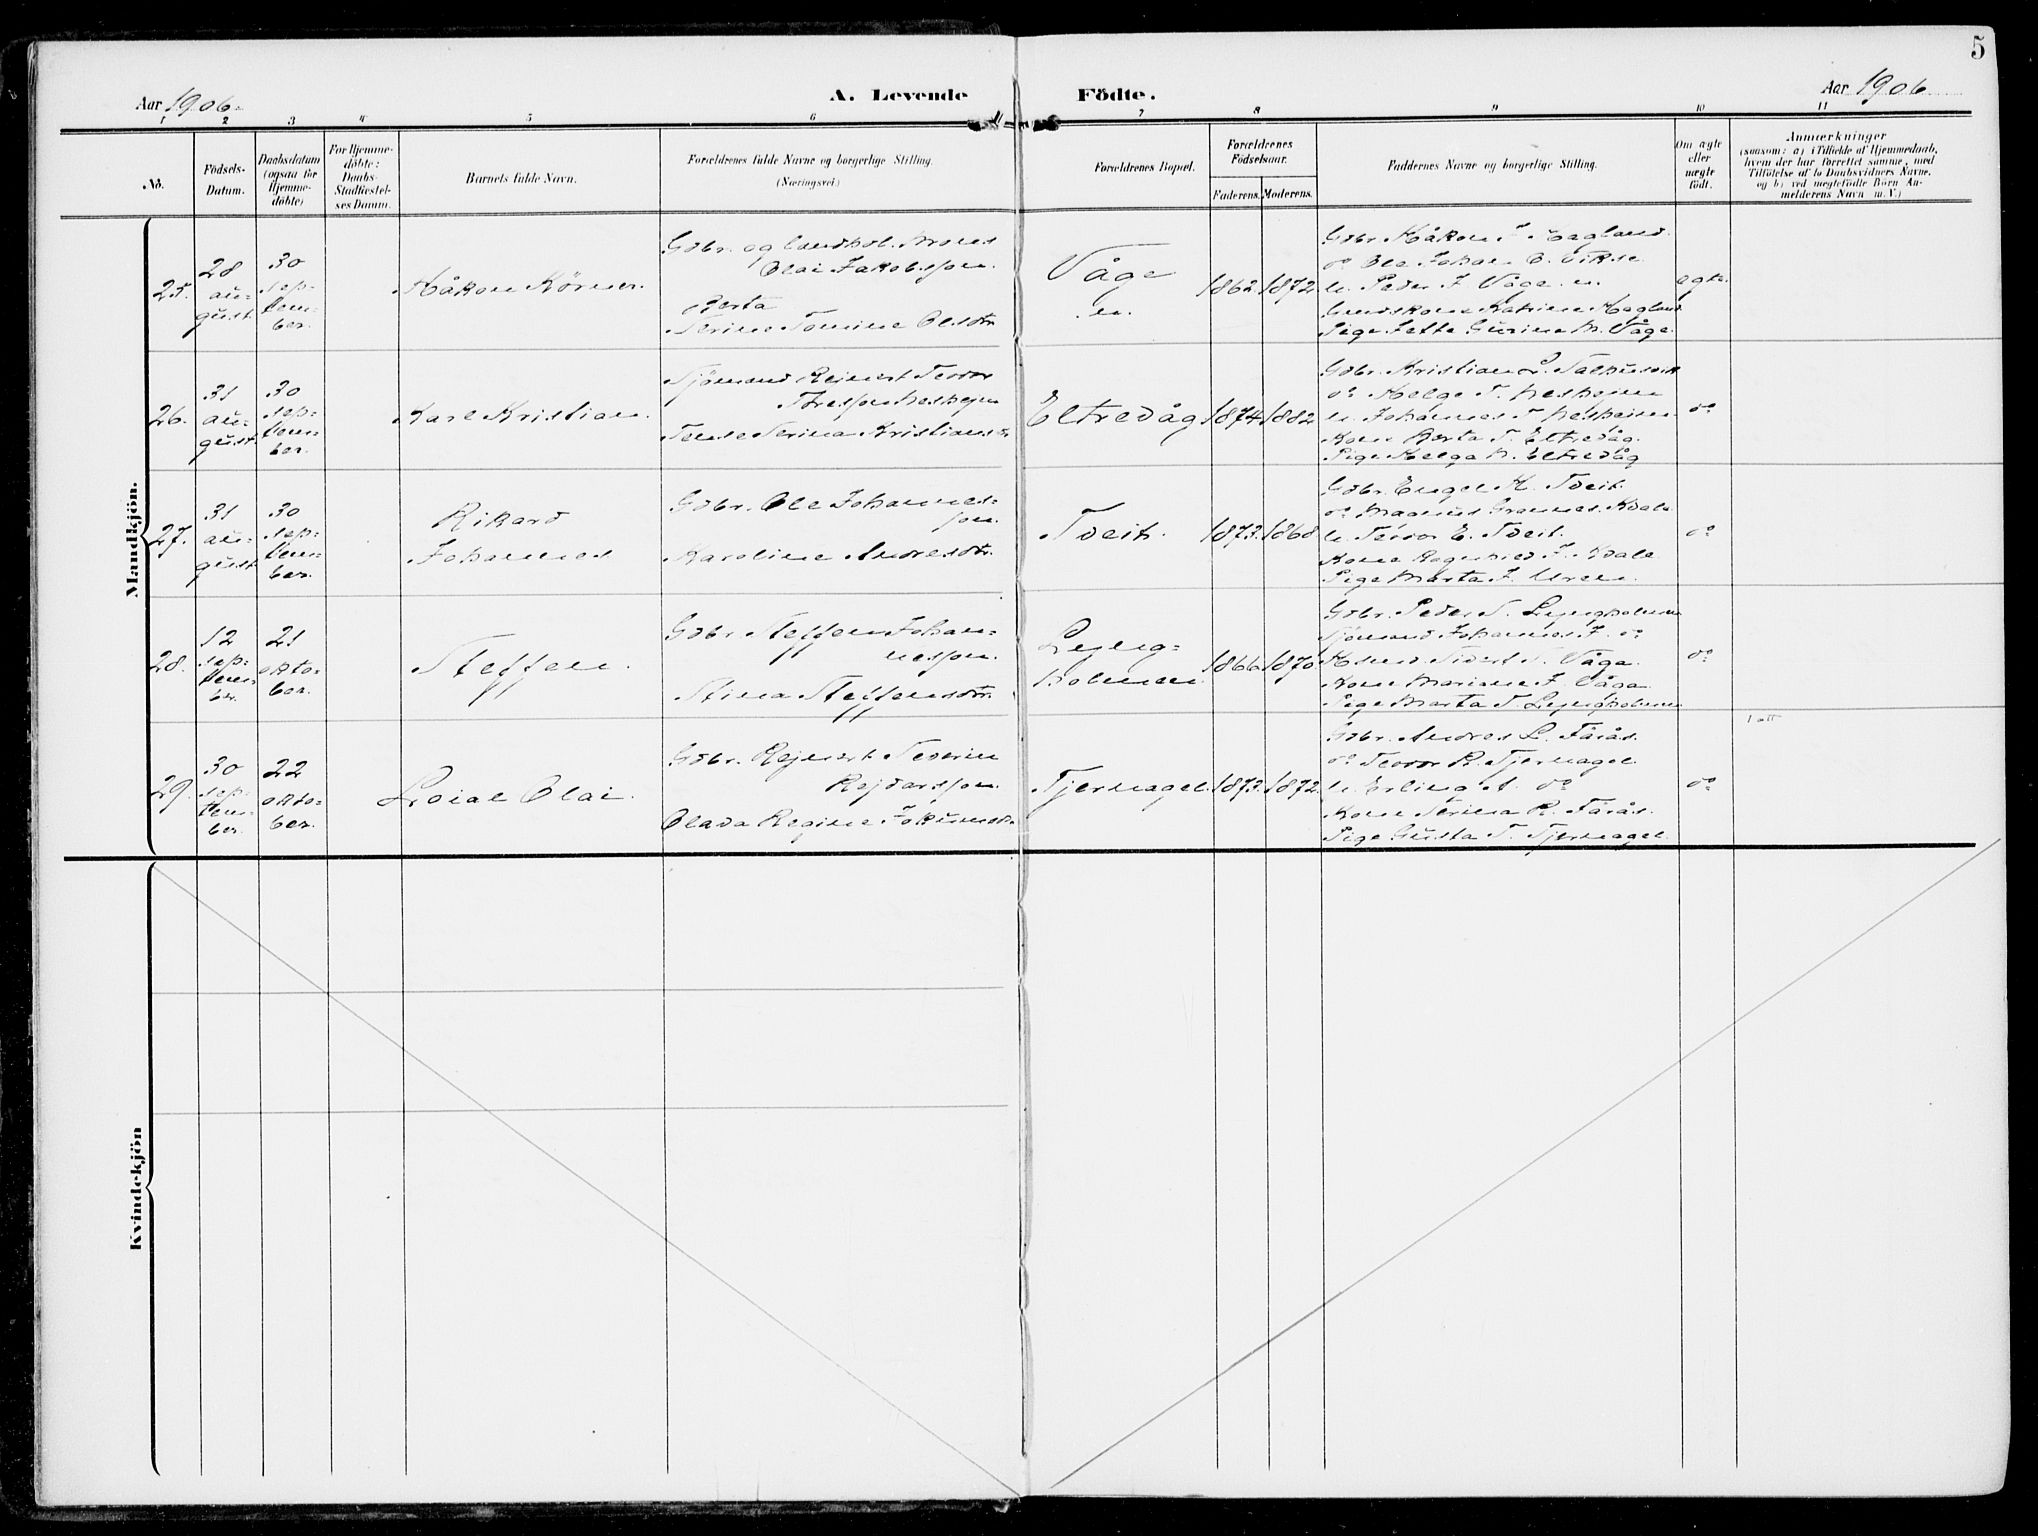 5
Aar 1906.
A. Levende Födte.
Aar 1906
1 2 3 4 5 6 7 8 9 10 11
No.
Födsels-
Datum.
Daabsdatum
(ogsaa for
Hjemme-
döbte)
For Hjemme-
döbte:
Daabs-
Stadfæstel-
ses Datum.
Barnets fulde Navn.
Forældrenes fulde Navne og borgerlige Stilling.
(Næringsvei)
Forældrenes Bopæl.
Forældrenes
Födselsaar.
Faderens. Moderens.
Faddernes Navne og borgerlige Stilling.
Om ægte
eller
uægte
födt.
Anmærkninger
(saasom: a) i Tilfælde af Hjemmedaab,
hvem der har forrettet samme, med
Tilföielse af to Daabsvidners Navne,
og b) ved uægtefödte Börn An-
melderens Navn m. V.)
Mandkjön.
25.
28
au-
gust
30
sep-
tem-
ber.
Håkon Körner.
Gdbr. og landhdl. Mons
Olai Jakobsson.
Berta
Serine Tomine Olsdtr
Våge
n.
1862. 1872.
Gdbr Håkon J Hagland.
do Ole Johan O. Vikse.
u. Peder J Våge. n.
Gmdskone Katrine Hagland
Pige Jette Gurine M. Våge.
egte.
26.
31
au-
gust
30
sep-
tem-
ber.
Karl Kristian.
Sjömand Rejnert Teodor
Toresson Neshejm
Tense Serina Kristiansdtr
Eltredåg
1874 1882
Gdbr. Kristian L. Salhusvik
do Helge T. Neshejm
u. Johannes T. Neshejm
Kone Berta T. Eltredåg.
Pige Helga M. Eltredåg
do
27.
31
au-
gust
30
sep-
tem-
ber.
Rikard
Johannes
Gdbr. Ole Johannes-
son.
Karoline Andresdtr.
Tveit.
1873. 1868
Gdbr. Engel H. Tveit.
do Magnus Grannes. Kvale
u. Teodor E. Tveit.
Kone Ragnhild J. Kvale
Pige Marta J. Ureen.
do
28.
12
sep-
tem-
ber.
21
okto-
ber.
Steffen.
Gdbr Steffen Johan-
nesson.
Stina Steffensdtr.
Lyng-
holmen.
1866. 1870.
Gdbr. Peder S. Lyngholmen
Sjömand Johannes J. do
Husmd. Sivert S. Våge.
Kone Mariane J. Våga
Pige Marta S. Lyngholmen
do
29.
30
sep-
tem-
ber.
22
okto-
ber.
Loial Olai.
Gdbr. Rejnert Severin
Rejdarsson.
Olava Regine Jokumsdtr.
Tjernagel.
1873. 1872.
Gdbr. Andres L. Fårås.
do Teodor R. Tjernagel.
u. Erling A. do
Kone Serina R. Fårås.
Pige Gusta T. Tjernagel.
do
1 att
Kvindekjön